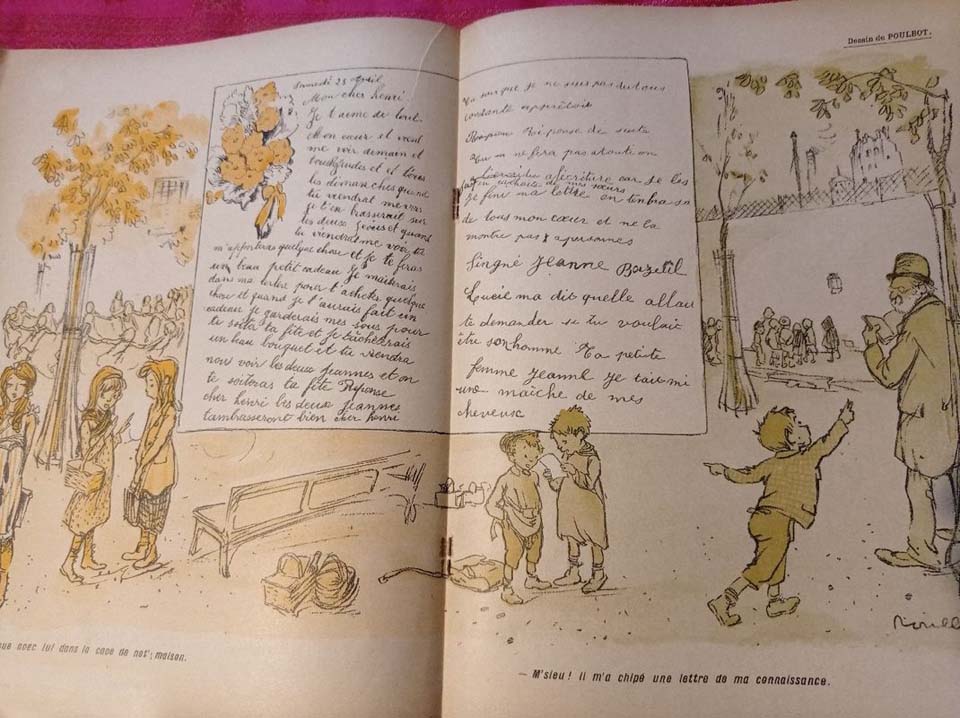 Dessin de POULBOT.
Samedi 23 Avril
Mon cher henri
Je t'aime de tout
Mon cœur et veut
me voir demain et
et tous
les dimanches quand
tu viendrat me voir
je t'en brasserait sur
les deux et quand
tu viendra me voir tu
m'apporteras quelque chose et je te feras
un beau petit cadeau je
dans ma pour t'acheter quelque
chose et quand je t'aurais fait un
cadeau je garderais mes sous pour
te ta fête et je t'achèterais
un beau bouquet et tu viendra
nous voir les deux jeannes et on
te soiteras ta fête Réponse
cher henri les deux jeannes
tambrasseront bien cher henri
que je ne suis pas du tous
constante
Réponse de suite
Tu ne fera pas atention
a l'écriture car je les
fait en cachete de mes sœurs
je fini ma lettre en tenbrasa
de tous mon cœur et ne la
montre pas a personnes
Singné Jeanne
Lucie ma dit quelle allait
te demander si tu voulait
être son homme Ta petite
femme Jeanne Je tait mi
une maiche de mes
cheveux
avec lui dans la cave de not' maison.
— M'sieu ! il m'a chipé une lettre de ma connaissance.